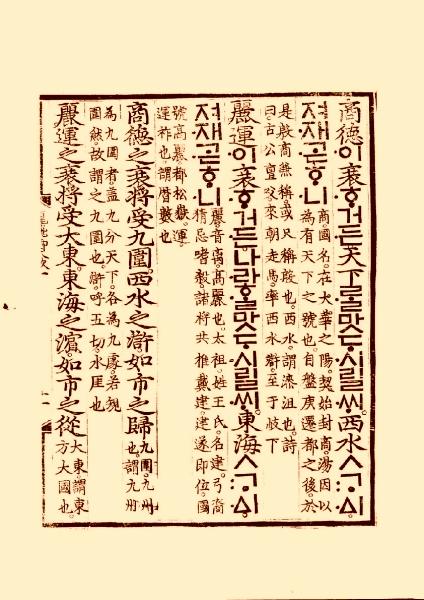 商德이衰ᄒᆞ거든天下ᄅᆞᆯ맛ᄃᆞ시릴ᄊᆡ。西水ㅅᄀᆞᅀᅵ
져재ᄀᆞᆮᄒᆞ니
商國名。在大華之陽。契始封商。湯因以
為有天下之號也。自盤庚遷都之後。於
是殷商兼稱。或只稱殷也。西水。謂漆沮也。詩
曰。古公亶父。來朝走馬。率西水滸。至于岐下
麗運이衰ᄒᆞ거든나라ᄒᆞᆯ맛ᄃᆞ시릴ᄊᆡ。東海ㅅᄀᆞᅀᅵ
져재ᄀᆞᆮᄒᆞ니
麗。音离。高麗也。太祖。姓王氏。名建。弓裔
猜忌嗜殺。諸將共推戴建。建遂即位。國
號高麗。都松嶽。運。
運祚也。謂曆數也
商德之衰。將受九圍。西水之滸。如市之歸
九圍。九州
也。謂九州
為九圍者。蓋九分天下。各為九處。若規
圍然。故謂之九圍也。滸。呼五切。水厓也
麗運之衰。將受大東。東海之濱。如市之從
大東。謂東
方大國也。